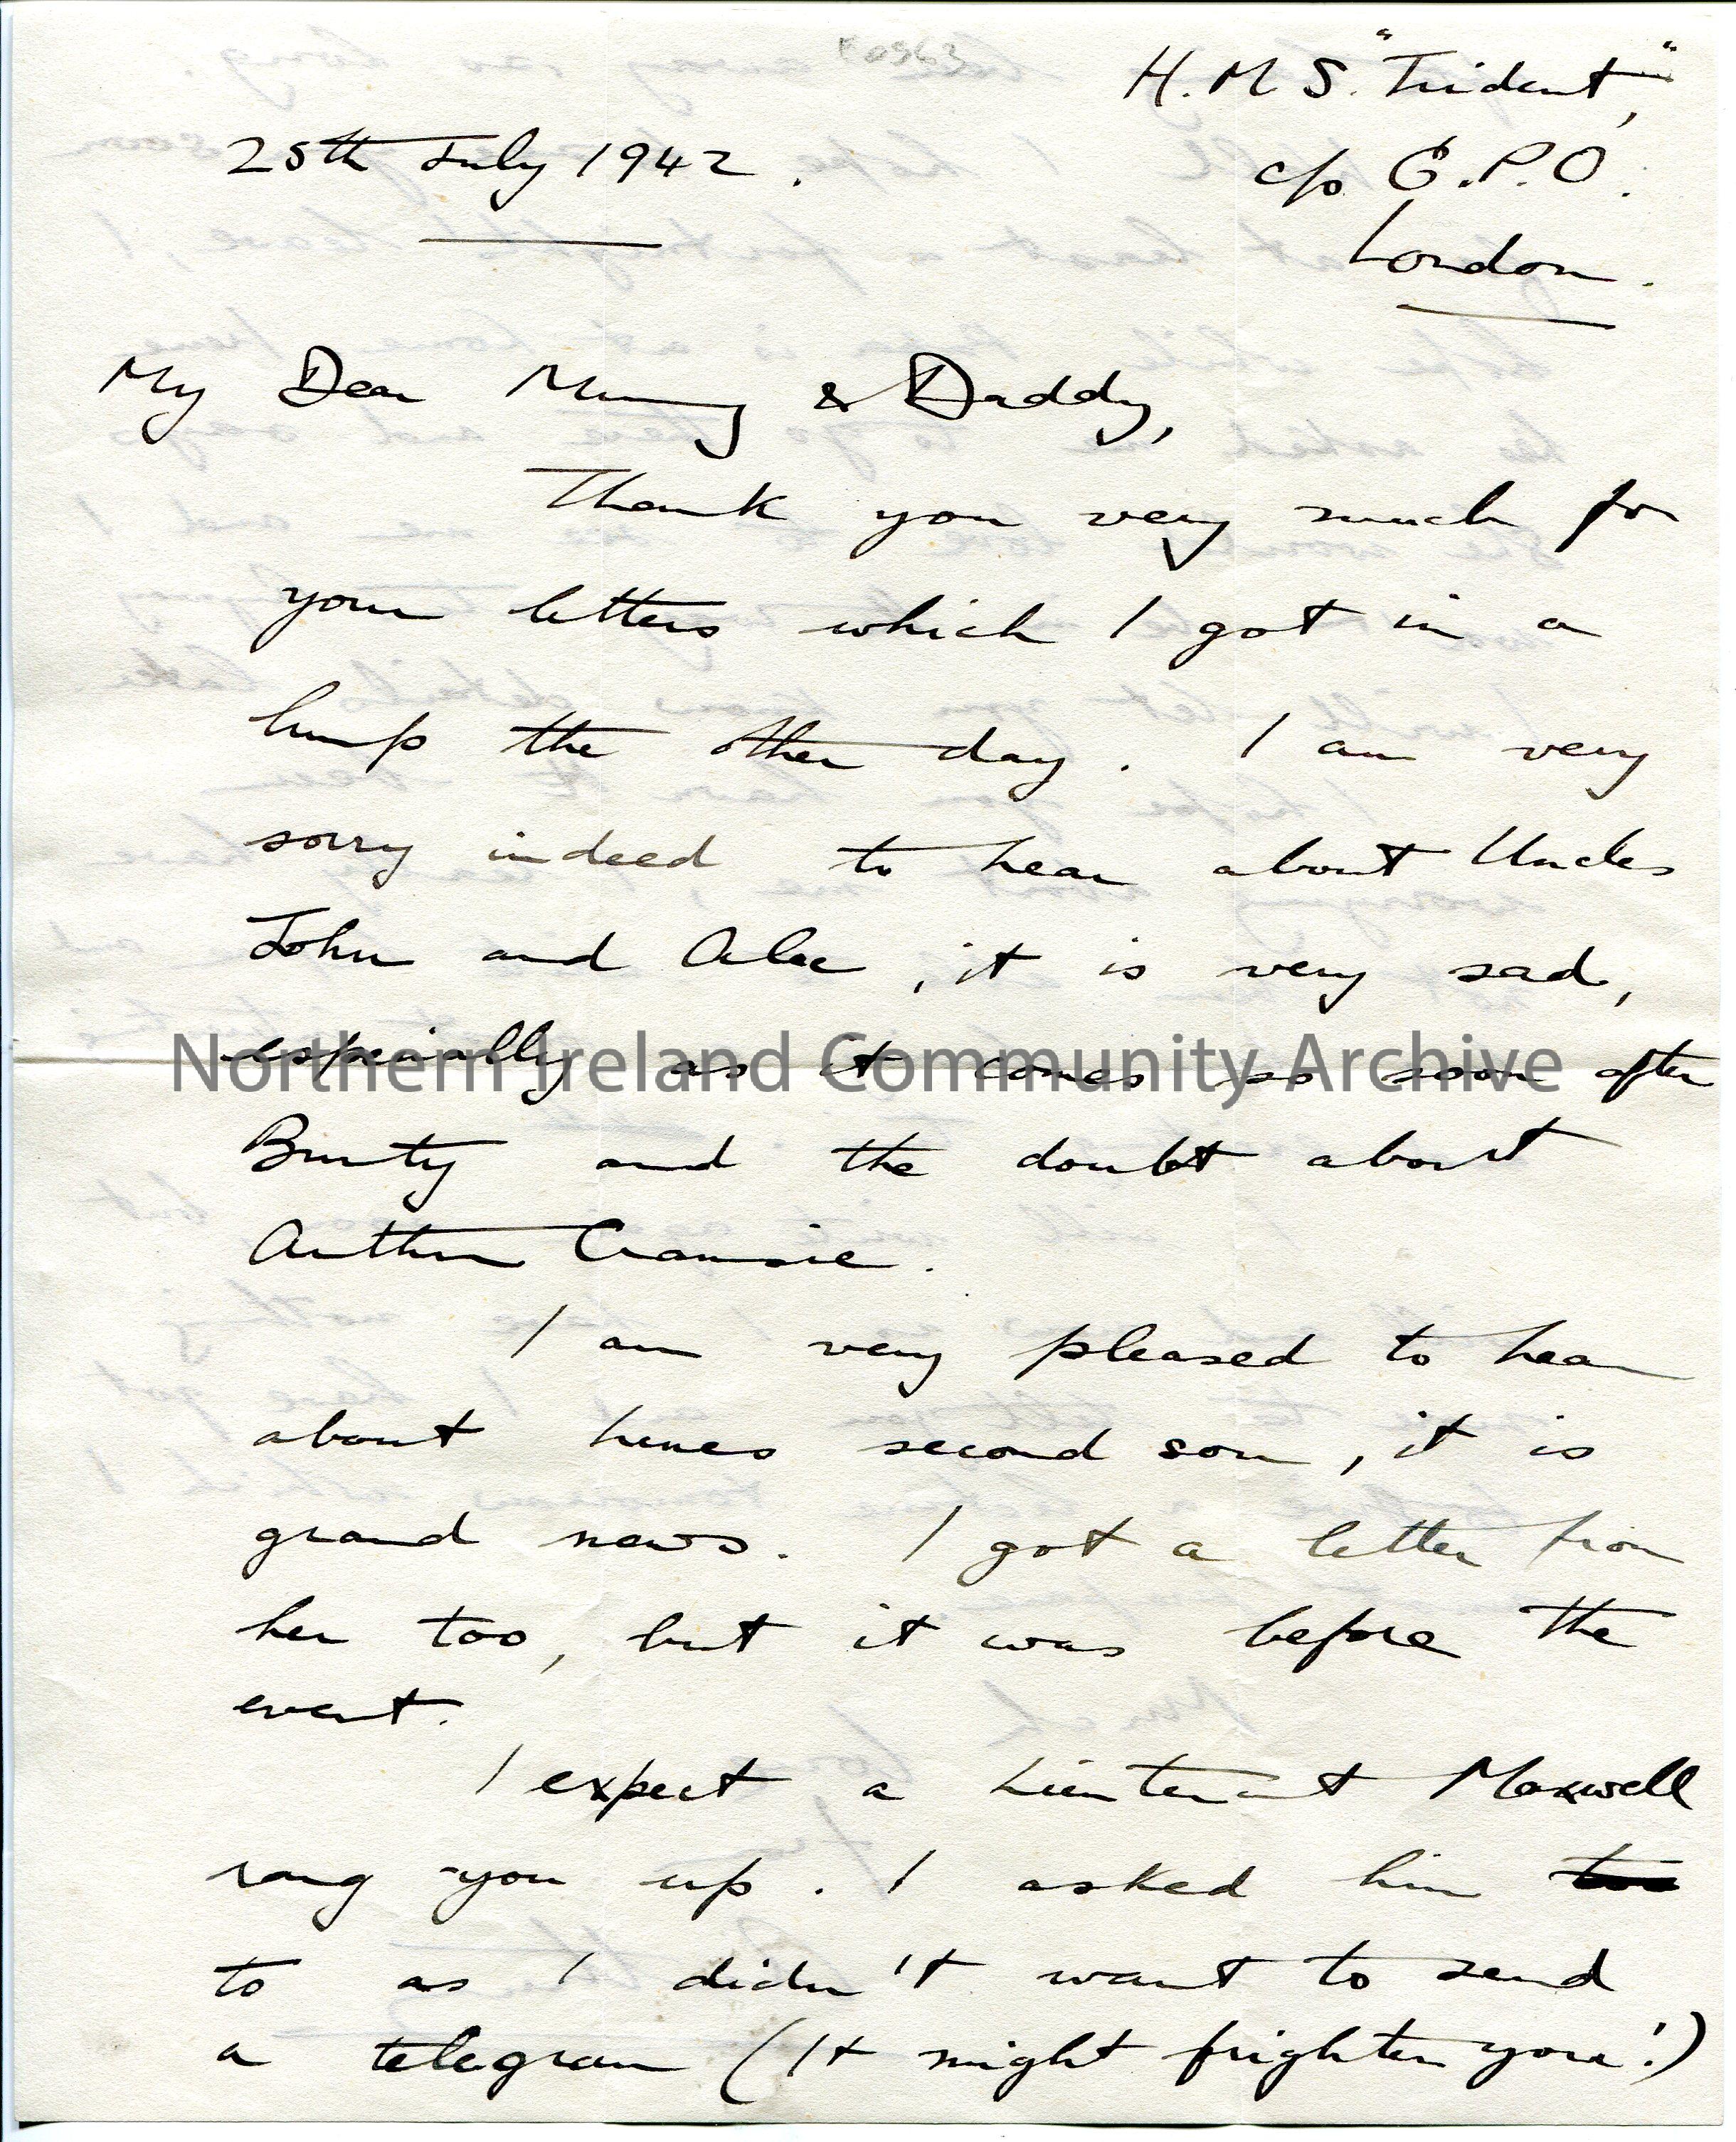 F0963
H.M.S. "Trident,"
25th July 1942.
c/o G.P.O.
London.
My Dear Mummy & Daddy,
Thank you very much for
your letters which I got in a
lump the other day. I am very
sorry indeed to hear about Uncles
John and Alec, it is very sad,
especially as it comes so soon after
Northern Ireland Community Archive
Bunty and the doubt about
Arthur Cramsie.
I am very pleased to hear
about second son, it is
grand news. I got a letter from
her too, but it was before the
event.
I expect a Lieutenant Maxwell
rang you up. I asked him
to as I didn't want to send
a telegram (It might frighten you!)